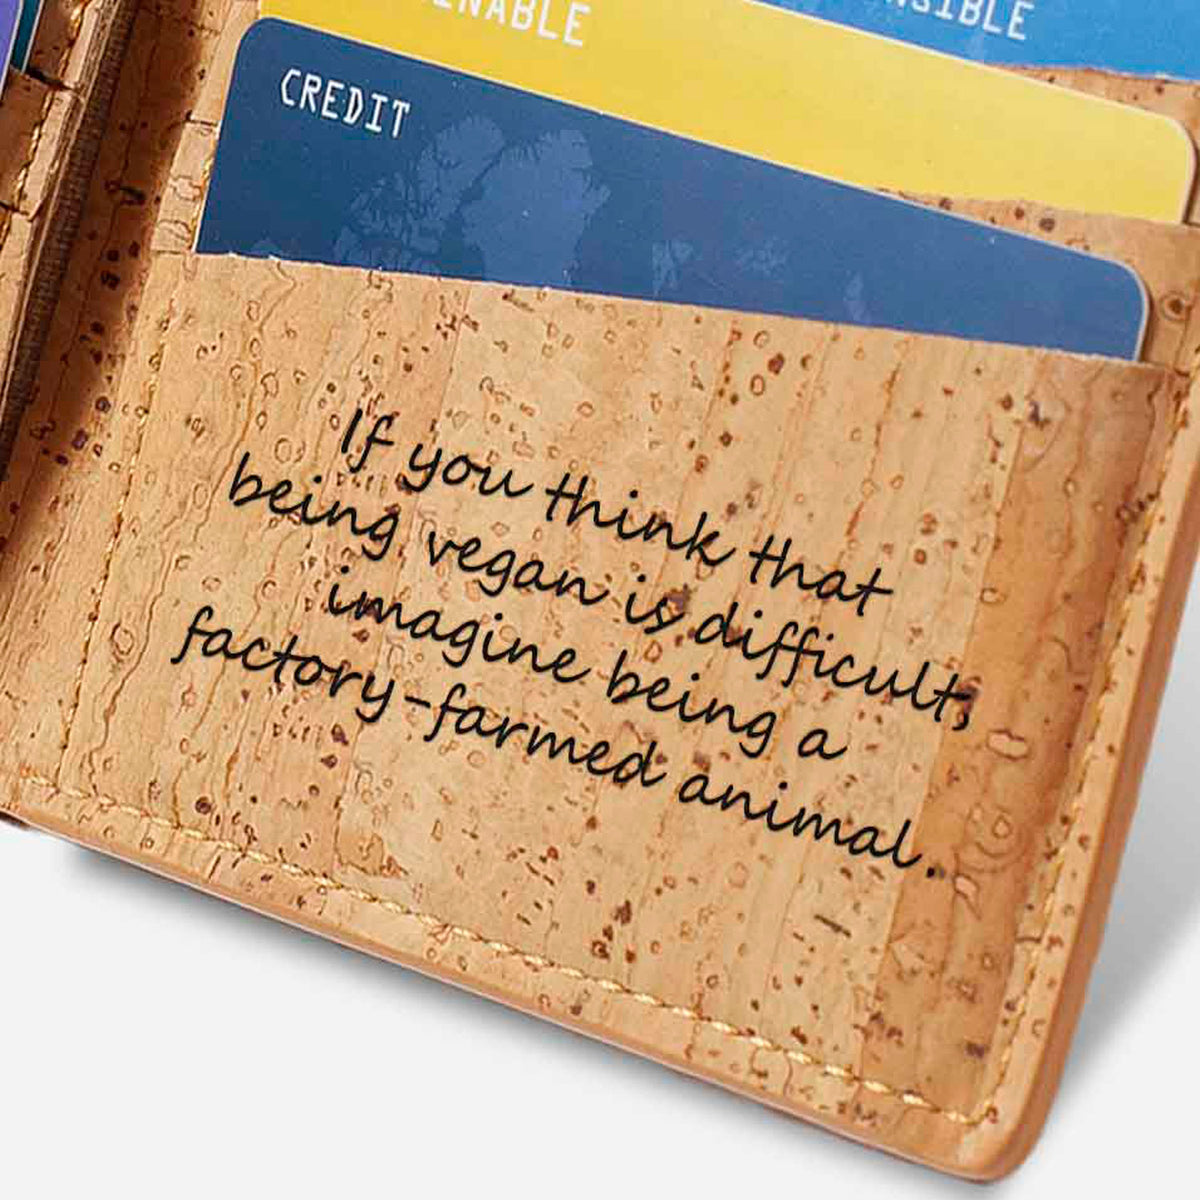 CREDIT
If you think that
being vegan is difficult,
imagine being a
factory-farmed animal.